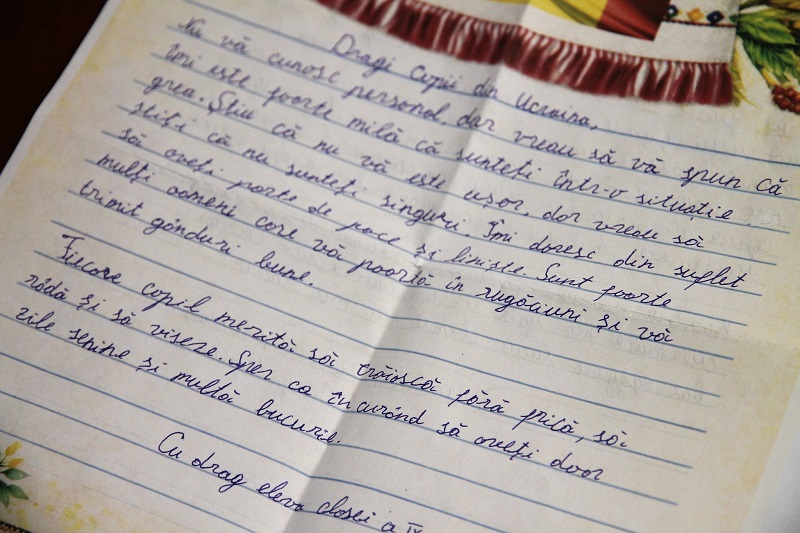 Dragi Copii din Ucraina,
Nu vă cunosc personal, dar vreau să vă spun că
îmi este foarte milă că sunteți într-o situație
grea. Știu că nu vă este ușor, dar vreau să
știți că nu sunteți singuri. Îmi doresc din suflet
să aveți parte de pace și liniște. Sunt foarte
mulți oameni care vă poartă în rugăciuni și vă
trimit gânduri bune.
Fiecare copil merită să trăiască fără frică, să
râdă și să viseze. Sper ca în curând să aveți doar
zile senine și multă bucurie.
Cu drag eleva clasei a IX